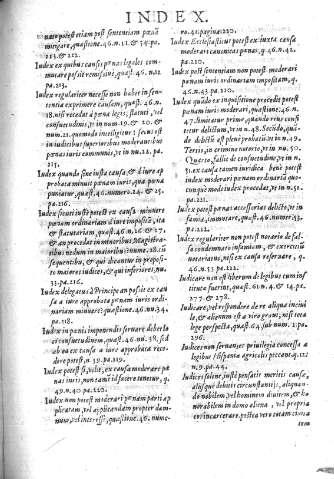 INDEX.
non potest etiam post sententiam pœnã
mitigare, quæstione. 46. n. 12. & 74. pa.
213.
Iudex ex quibus causis pœnas legales com-
mutare possit remissiuè, quæst. 46. n. 12
pa. 213.
Iudex regulariter necesse non habet in sen-
tentia exprimere causam, quæst. 46. n.
confuetudinis, pe in num. 19. & 20. &
num. 21. quomodo intelligitur: secus est
in iudicibus superioribus moderatibus
pœnas iuris communis, vt in nu. 22.
pa. 213.
Iudex quando sine iusta causa, & à iure ap
probata minuit pœnam iuris, qua pœna
puniatur, quæst. 46. num. 24. & 25.
pa. 216.
Iudex sicuti iuste potest ex causa minuere
pœnam ordinariam imponendam, ita
& statutariam, quæst. 46. n. 26 & 27.
& an procedat in minoribus Magistra-
tibus
sequentibus, & qui dicantur in proposi-
to maiores iudices, & qui inferiores, nu.
33. pa. 216.
Iudex delegatus à Principe an possit ex cau
sa à iure approbata pœnam iuris ordi-
nariam minuere: quæstione. 46. nu. 34.
pa. 218.
Iudex in pœnis imponendis seruare debet lo
ci consuetudinem, quæst. 46. nu. 38. sed
ab ea ex causa à iure approbata rece-
dere potest, n. 39. pa. 219.
Iudex potest si, velit, ex causa moderare pœ
nas iuris, non tamen id facere tenetur, q.
49. n. 40 pa. 220.
Iudex non potest moderari pœnam parti ap
plicatam, vel applicandam propter dam-
num, vel interesse, quæstione. 46. nume-
ro. 41. pagina. 220.
Iudex Ecclesiasticus potest ex iusta causa
moderari canonicas pœnas, q. 46. n. 42.
pa. 220.
Iudex post sententiam non potest moderari
pœnam iuris ordinariam impositam, q.
46. n. 43. pa. 220.
Iudex quãdo ex inquisitione procedit potest
pœnam iuris moderari, quæstione. 46. n.
47. limitatur primo, quando reus confi
tetur delictum, vt in nu. 48. Secùdo, quã-
do delicti fit probatio, vt in nu. 49.
Tertio, in crimine notorio, vt in nu. 50.
Quarto, fallit de consuetudine, vt in n.
51. ex causa tamen iuridica bene potest
index moderari pœnam ordinariã quo-
cunque modo index procedat, vt in nu. 52.
pa. 221.
Iudex potest pœnas accessorias delicto, vt in
famia, immutare, quæst. 46. numer. 53.
pa. 222.
Iudex regulariter non potest notario de fal-
so condemnato infamiam, & exercitiũ
notariatus, nisi ex causa reseruare, q.
46. n. 53. pa. 222.
Iudicare non est liberum de legibus cum insti
tutæ fuerint, quæst. 61. n. 4. & 14. pa.
277. & 278.
Iudicare, vel respondere de re aliqua inciui
le, & assensum est à viro graui, nisi tota
lege perspecta, quæst. 64. sub num. 2. pa.
296.
Iudices non seruantes priuilegia concessa à
legibus Hispaniæ agricolis peccant, q. 12.
n. 9. pa. 44.
Iudices solent, iustè pensatis meritis causæ,
alijsque debitis circunstantijs, aliquan-
do nobilem vel hominem diuitem, & ho
norabilem in domo aliena, vel propria
carcere incarcerare. postea vero eum ciuita
tem